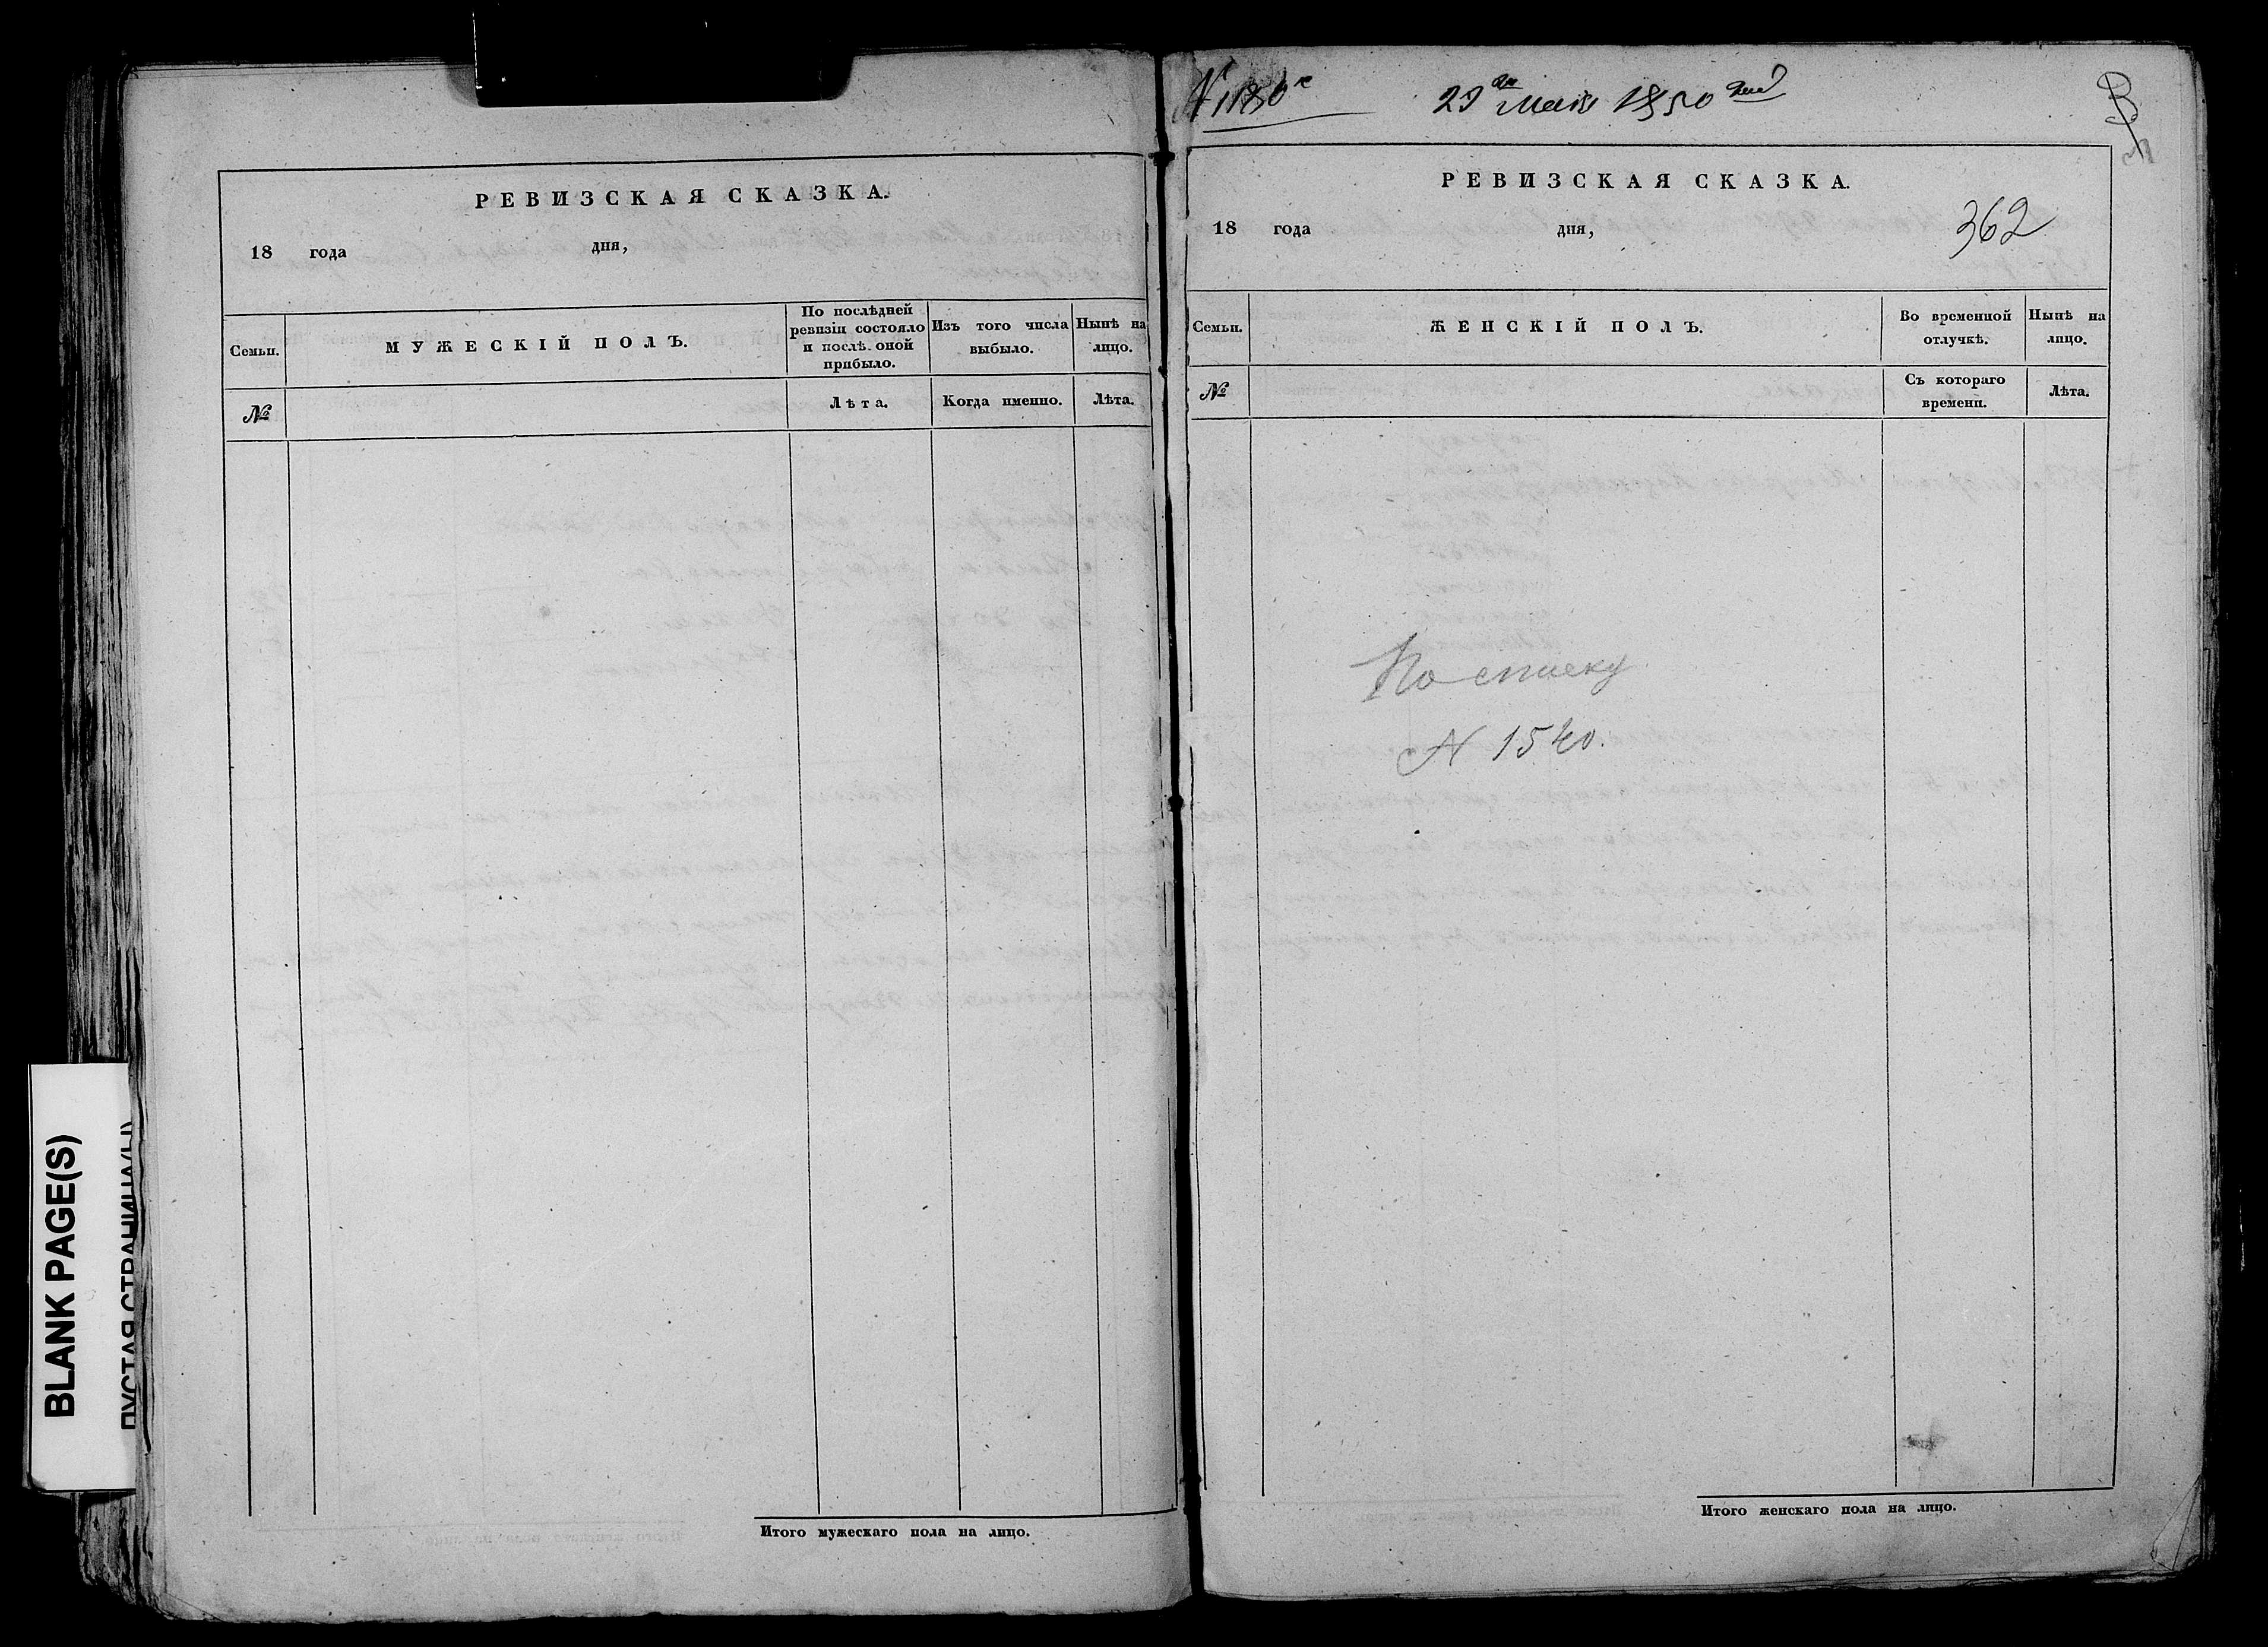 РЕВИЗСКАЯ СКАЗКА.
18 года дня,
Семьи.
МУЖЕСКІЙ ПОЛЪ.
По послѣдней ревизіи состояло и послѣ оной прибыло.
Изъ того числа выбыло.
Нынѣ на лицо.
№
Лѣта.
Когда именно.
Лѣта.
Итого мужескаго пола на лицо.
29 мая 1850
РЕВИЗСКАЯ СКАЗКА.
18 года дня,
362
Семьи.
ЖЕНСКІЙ ПОЛЪ.
Во временной отлучкѣ.
Нынѣ на лицо.
№
Съ котораго времени.
Лѣта.
По списку
N 1540.
Итого женскаго пола на лицо.
BLANK PAGE(S)